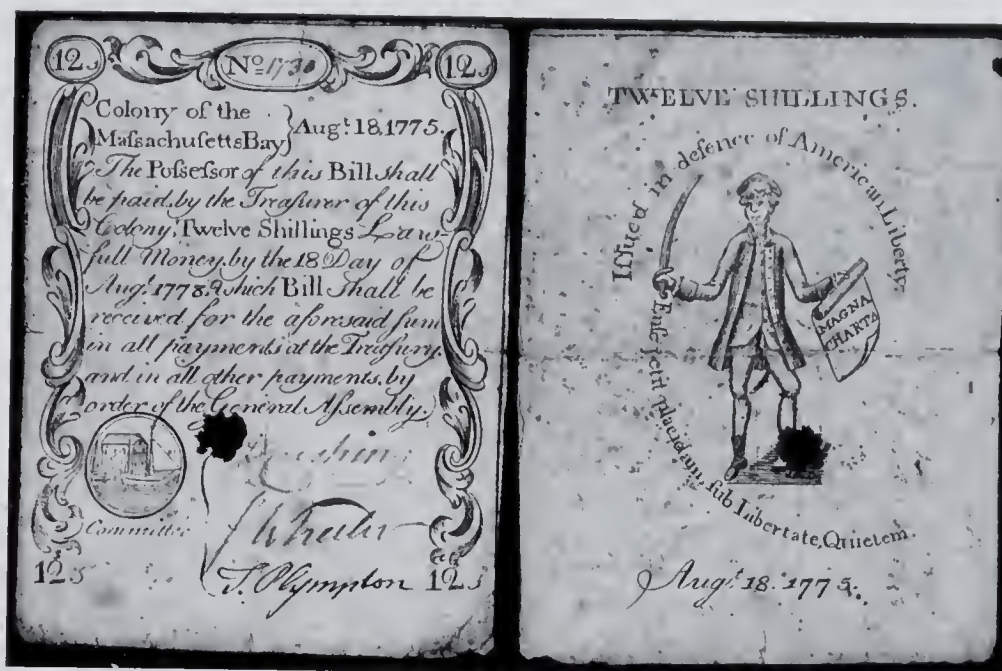 12s Nº 1730 12s
Colony of the
Maſsachusetts Bay } Augᵗ. 18, 1775.
The Poſseſsor of this Bill shall
be paid, by the Treaſurer of this
Colony, Twelve Shillings Law-
full Money, by the 18 Day of
Augᵗ. 1778, which Bill shall be
received for the aforesaid sum
in all payments at the Treaſury.
and in all other payments, by
order of the General Aſsembly.
Committee
J Wheeler
T. Plympton
12s 12s
TWELVE SHILLINGS.
Iſsued in defence of American Liberty.
MAGNA
CHARTA
Enſe petit placidam, ſub Libertate, Quietem.
Augᵗ. 18. 1775.